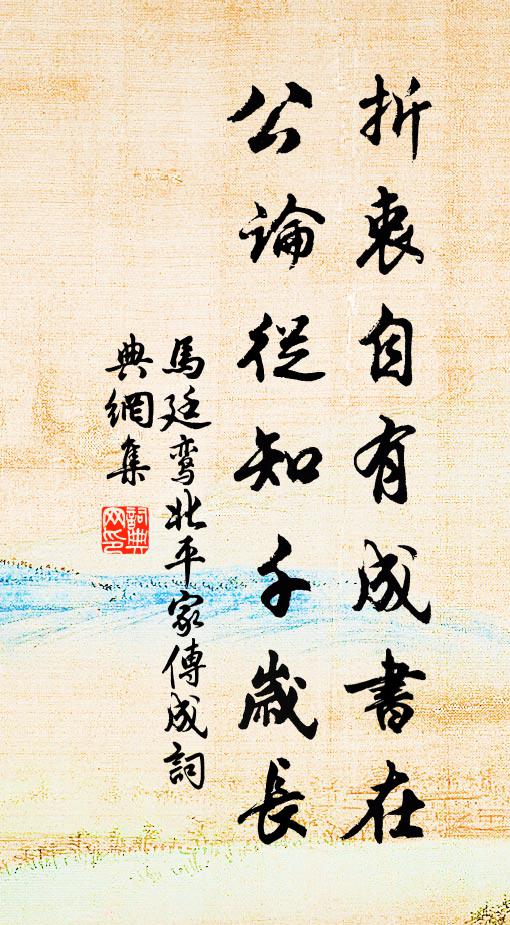 折衷自有成書在
公論從知千歲長
馬廷鸞北平家傳成詞
典網集
詞典
网印